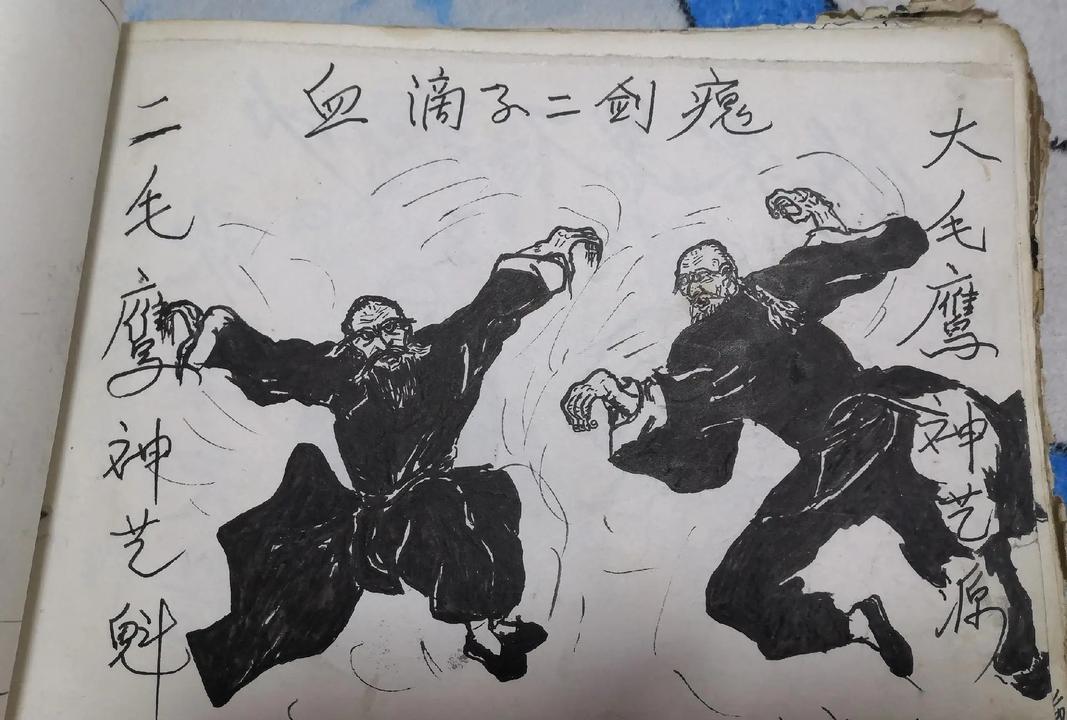 血滴子二剑瘣
大毛鹰神艺源
二毛鹰神艺魁